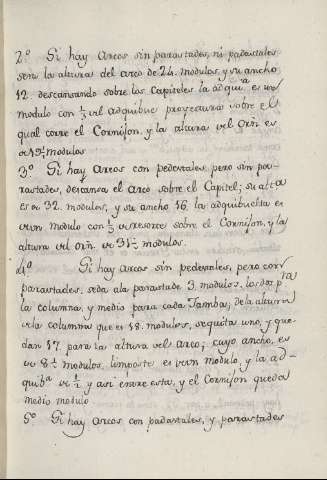 2º Si hay Arcos sin parastades, ni padastales
sera la altura del arco de 24. modulos, y su ancho
12 descansando sobre los Capiteles la adquiª es un
modulo con ½ vl adquibue proyectura sobre el
qual corre el Cornison, y la altura vl Orñ. es
19½ modulos
3º Si hay Arcos con pedestales, pero sin pa-
rastades, descansa el Arco sobre el Capitel; su alta
es 32. modulos, y su ancho 16. la adquibuelta es
un modulo con ½ resorte sobre el Cornison, y la
altura vl orñ. es 31½ modulos.
4º Si hay arcos sin pedestales, pero con
parastades, se da ala parastade 3. modulos, los dos pra
la columna, y medio para cada Jamba; de la altura
de la columna que es 18. modulos, se quita uno, y que-
dan 17 para la altura vl arco; cuyo ancho, es
8½ modulos, limposte es un modulo, y la ad-
quibª ½ y asi entre esta, y el Cornison queda
medio modulo
5º Si hay Arcos con padastales, y parastades